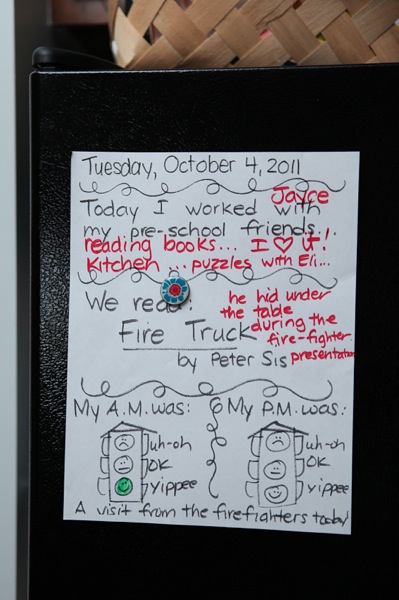 Tuesday, October 4, 2011
Jayce
Today I worked with
my pre-school friends...
reading books... I ♡ it!
Kitchen ... puzzles with Eli...
We read:
he hid under
the table
during the
fire-fighter
presentation
Fire Truck
by Peter Sis
My A.M. was:
uh-oh
OK
yippee
My P.M. was:
uh-oh
OK
yippee
A visit from the firefighters today!